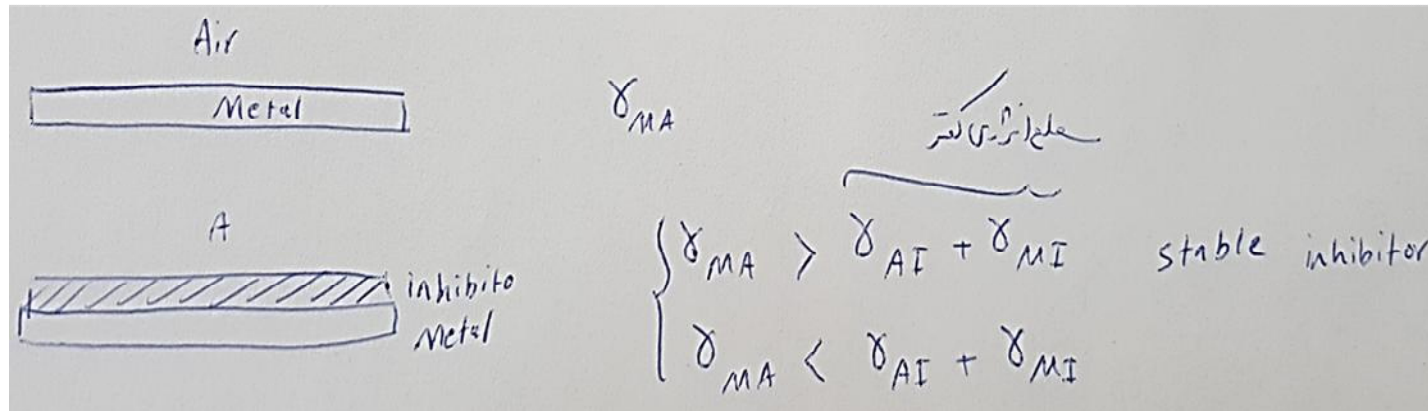 Air
Metal
γ_MA
سطح انرژی کمتر
A
inhibito
Metal
{ γ_MA > γ_AI + γ_MI stable inhibitor
γ_MA < γ_AI + γ_MI